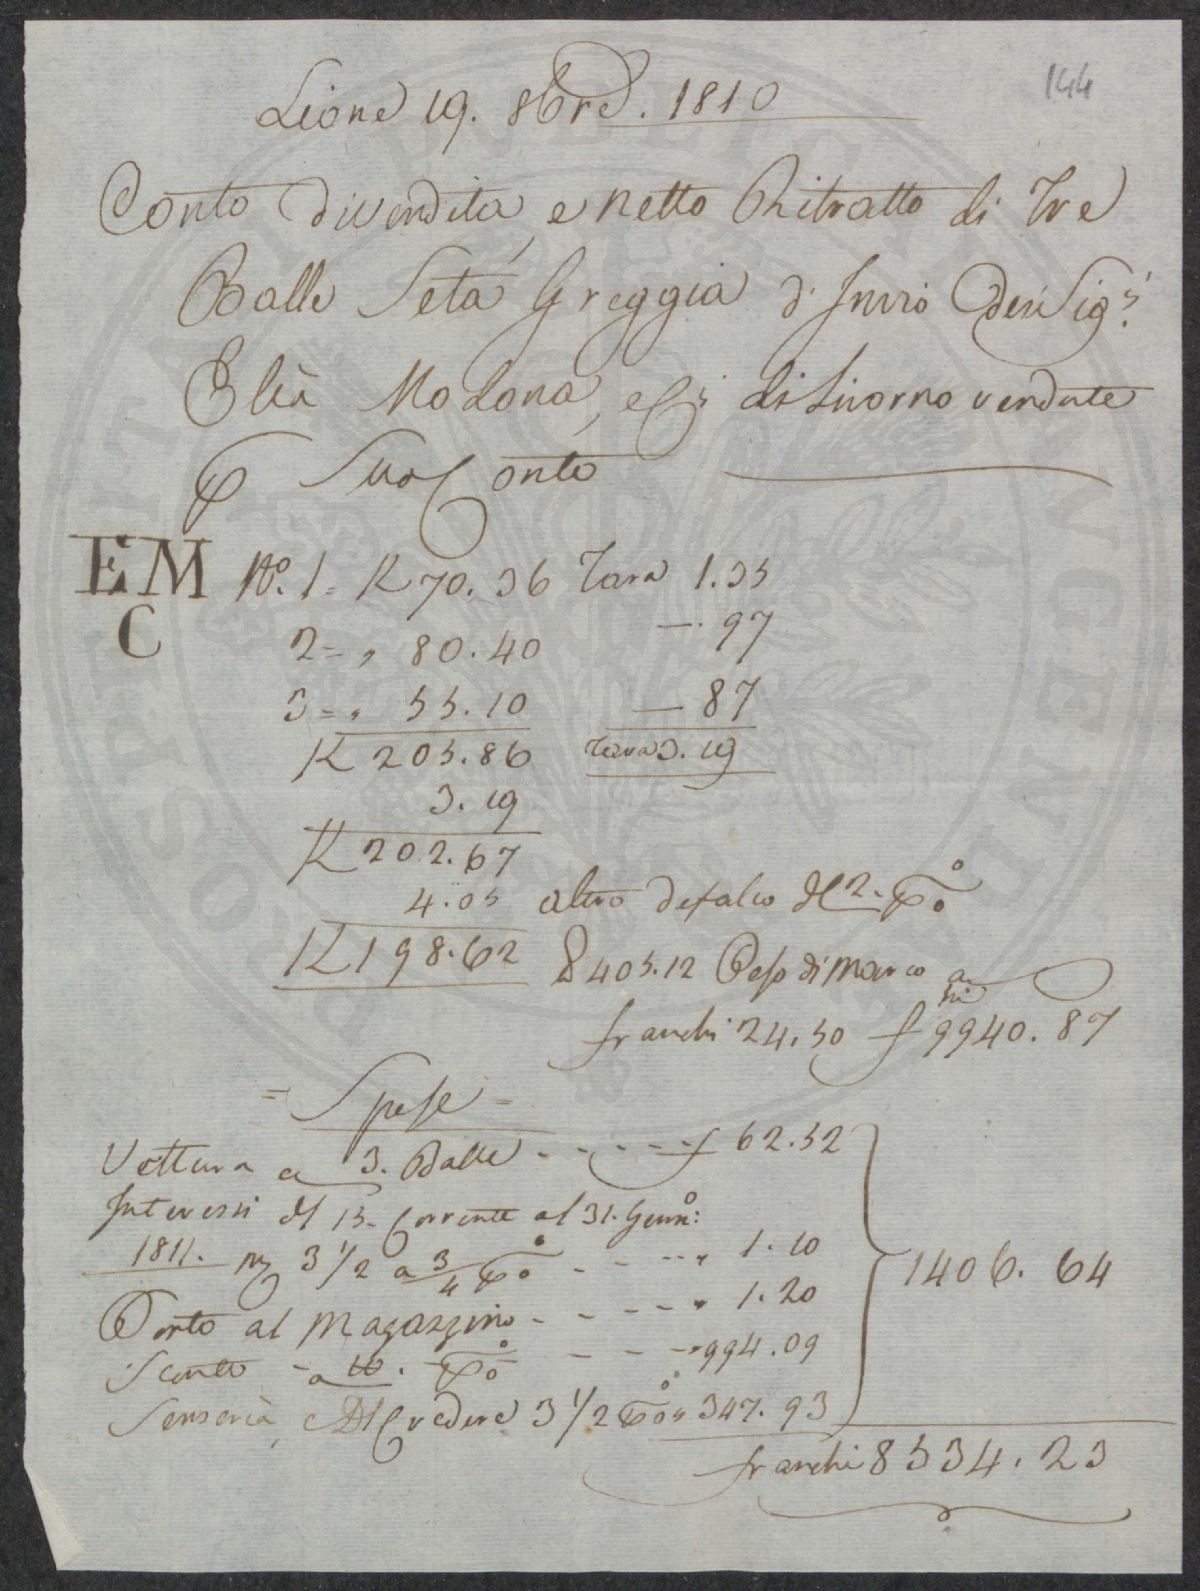 144
Lione 19. 8bre. 1810
Conto di vendita, e netto Ritratto di Tre
Balle Seta Greggia d' Invio dei Sigri.
Elia Modona, e Ci di Livorno vendute
p Suo Conto
E M
C
No. 1 = K 70.36 Tara 1.35
2 = " 80.40 — . 97
3 = " 55.10 — 87
K 205.86 Tara 3.19
3.19
K 202.67
4.05 altro defalco del 2. p%
K 198.62 ℔ 405.12 Peso di Marco a
franchi 24.50 f 9940.87
= Spese =
Vettura a 3. Balle - - - - - f 62.32
Interessi dl 15. Corrente al 31. Genn:o
1811. 3 1/2 a 3/4 p% - - - " 1.10
Porto al Magazzino - - - - " 1.20
Sconto - a 10. p% - - - " 994.09
Senseria, e Dl Credere 3 1/2 p% " 347.93
1406.64
franchi 8534.23
PROSPERITATI PUBLICAE AUGENDAE